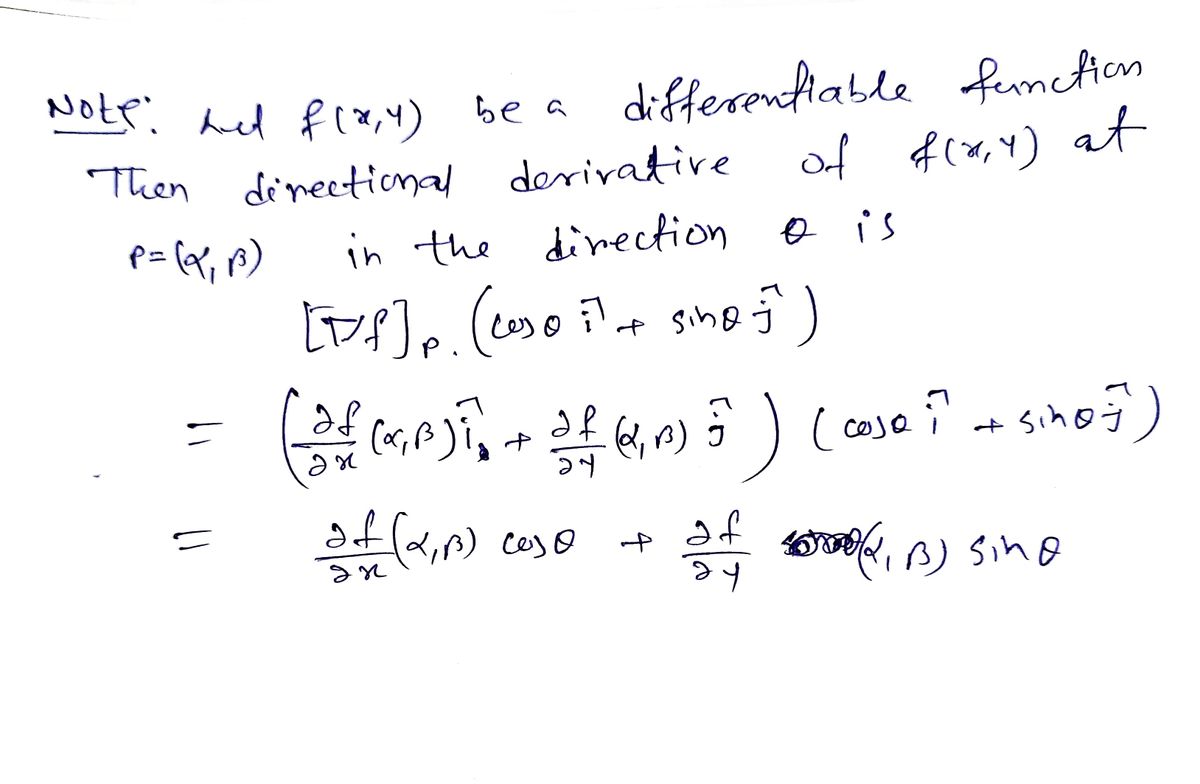 Note: Let f(x,y) be a differentiable function
Then directional derivative of f(x,y) at
P=(α,β) in the direction θ is
[∇f]_P . (cosθ î + sinθ ĵ)
= (∂f/∂x (α,β) î + ∂f/∂y (α,β) ĵ) (cosθ î + sinθ ĵ)
= ∂f/∂x (α,β) cosθ + ∂f/∂y (α,β) sinθ